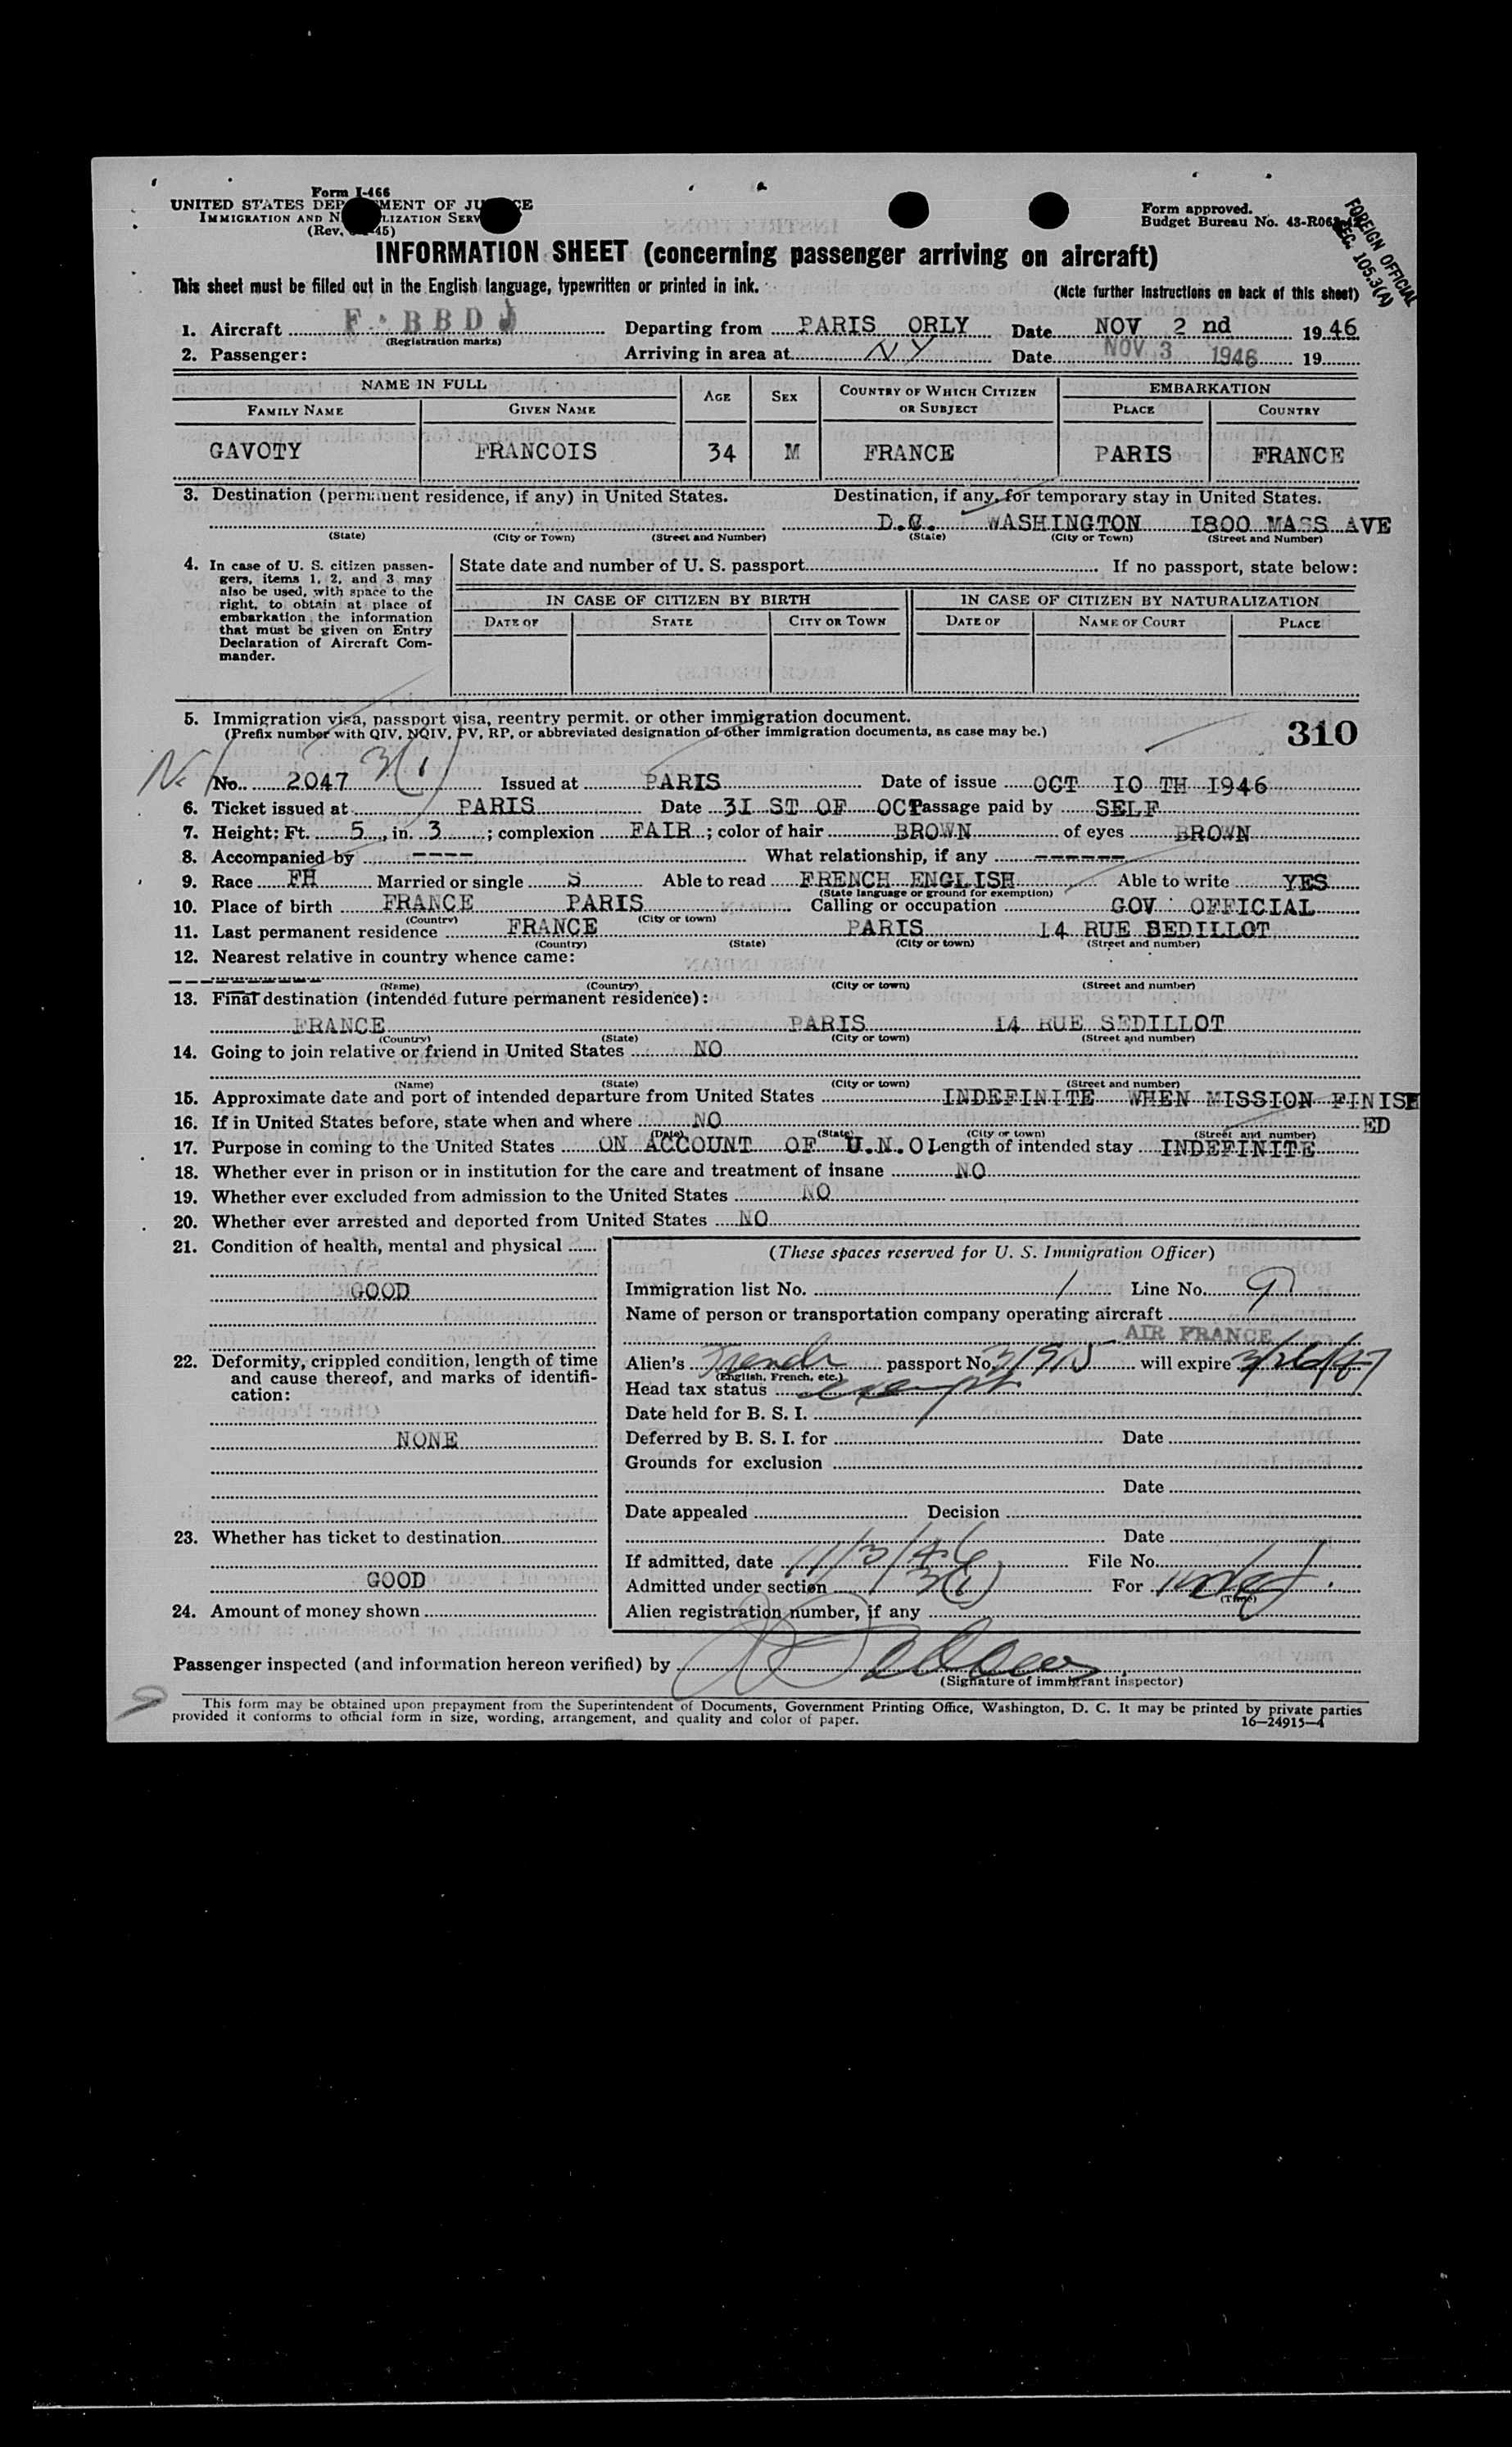 Form I-466
UNITED STATES DEP MENT OF JU CE
IMMIGRATION AND N LIZATION SERV
(Rev. 45)
Form approved.
Budget Bureau No. 43-R063
FOREIGN OFFICIAL
SEC. 105.3(A)
INFORMATION SHEET (concerning passenger arriving on aircraft)
This sheet must be filled out in the English language, typewritten or printed in ink. (Note further instructions on back of this sheet)
1. Aircraft F·BBDJ Departing from PARIS ORLY Date NOV 2 nd 1946
(Registration marks)
2. Passenger: Arriving in area at NY Date NOV 3 1946 19
NAME IN FULL AGE SEX COUNTRY OF WHICH CITIZEN OR SUBJECT EMBARKATION
FAMILY NAME GIVEN NAME PLACE COUNTRY
GAVOTY FRANCOIS 34 M FRANCE PARIS FRANCE
3. Destination (permanent residence, if any) in United States. Destination, if any, for temporary stay in United States.
D.C. WASHINGTON I800 MASS AVE
(State) (City or Town) (Street and Number) (State) (City or Town) (Street and Number)
4. In case of U. S. citizen passengers, items 1, 2, and 3 may also be used, with space to the right, to obtain at place of embarkation the information that must be given on Entry Declaration of Aircraft Commander.
State date and number of U. S. passport If no passport, state below:
IN CASE OF CITIZEN BY BIRTH IN CASE OF CITIZEN BY NATURALIZATION
DATE OF STATE CITY OR TOWN DATE OF NAME OF COURT PLACE
5. Immigration visa, passport visa, reentry permit, or other immigration document.
(Prefix number with QIV, NQIV, PV, RP, or abbreviated designation of other immigration documents, as case may be.)
310
No. 2047 3(1) Issued at PARIS Date of issue OCT IO TH I946
6. Ticket issued at PARIS Date 3I ST OF OCT Passage paid by SELF
7. Height: Ft. 5, in. 3; complexion FAIR; color of hair BROWN of eyes BROWN
8. Accompanied by ---- What relationship, if any ------
9. Race FH Married or single S Able to read FRENCH ENGLISH Able to write YES
(State language or ground for exemption)
10. Place of birth FRANCE PARIS Calling or occupation GOV OFFICIAL
(Country) (City or town)
11. Last permanent residence FRANCE PARIS I4 RUE SEDILLOT
(Country) (State) (City or town) (Street and number)
12. Nearest relative in country whence came:
(Name) (Country) (City or town) (Street and number)
13. Final destination (intended future permanent residence):
FRANCE PARIS I4 RUE SEDILLOT
(Country) (State) (City or town) (Street and number)
14. Going to join relative or friend in United States NO
(Name) (State) (City or town) (Street and number)
15. Approximate date and port of intended departure from United States INDEFINITE WHEN MISSION FINISH
ED
16. If in United States before, state when and where NO
(Date) (State) (City or town) (Street and number)
17. Purpose in coming to the United States ON ACCOUNT OF U.N.O Length of intended stay INDEFINITE
18. Whether ever in prison or in institution for the care and treatment of insane NO
19. Whether ever excluded from admission to the United States NO
20. Whether ever arrested and deported from United States NO
21. Condition of health, mental and physical
GOOD
22. Deformity, crippled condition, length of time and cause thereof, and marks of identification:
NONE
23. Whether has ticket to destination
GOOD
24. Amount of money shown
(These spaces reserved for U. S. Immigration Officer)
Immigration list No. 1 Line No. 9
Name of person or transportation company operating aircraft
AIR FRANCE
Alien's French passport No. will expire 3/26/47
(English, French, etc.)
Head tax status exempt
Date held for B. S. I.
Deferred by B. S. I. for Date
Grounds for exclusion
Date
Date appealed Decision
Date
If admitted, date 11/3/46 File No.
Admitted under section 3(1) For Indef.
(Time)
Alien registration number, if any
Passenger inspected (and information hereon verified) by
(Signature of immigrant inspector)
9
This form may be obtained upon prepayment from the Superintendent of Documents, Government Printing Office, Washington, D. C. It may be printed by private parties
provided it conforms to official form in size, wording, arrangement, and quality and color of paper.
16—24915-4